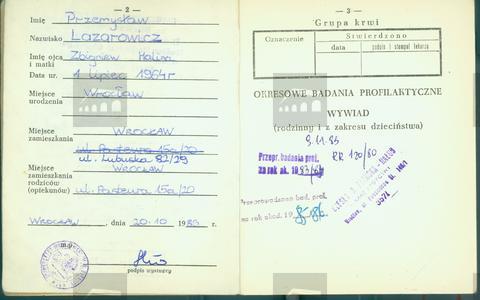 — 2 —
Imię Przemysław
Nazwisko Lazarowicz
Imię ojca i matki Zbigniew Halina
Data ur. 1 lipiec 1964r
Miejsce urodzenia Wrocław
Miejsce zamieszkania WROCŁAW
ul. Pasteura 15a/20
ul. Lubuska 82/29
Miejsce zamieszkania rodziców (opiekunów) WROCŁAW
ul. Pasteura 15a/20
WROCŁAW, dnia 20-10 1983 r.
podpis wystawcy
— 3 —
Grupa krwi
Oznaczenie
Stwierdzono
data
podpis i stempel lekarza
OKRESOWE BADANIA PROFILAKTYCZNE
WYWIAD
(rodzinny i z zakresu dzieciństwa)
Przepr. badania prof.
za rok ak. 1983/84
RR 120/80
Przeprowadzono bad. prof.
za rok akad. 1985/86